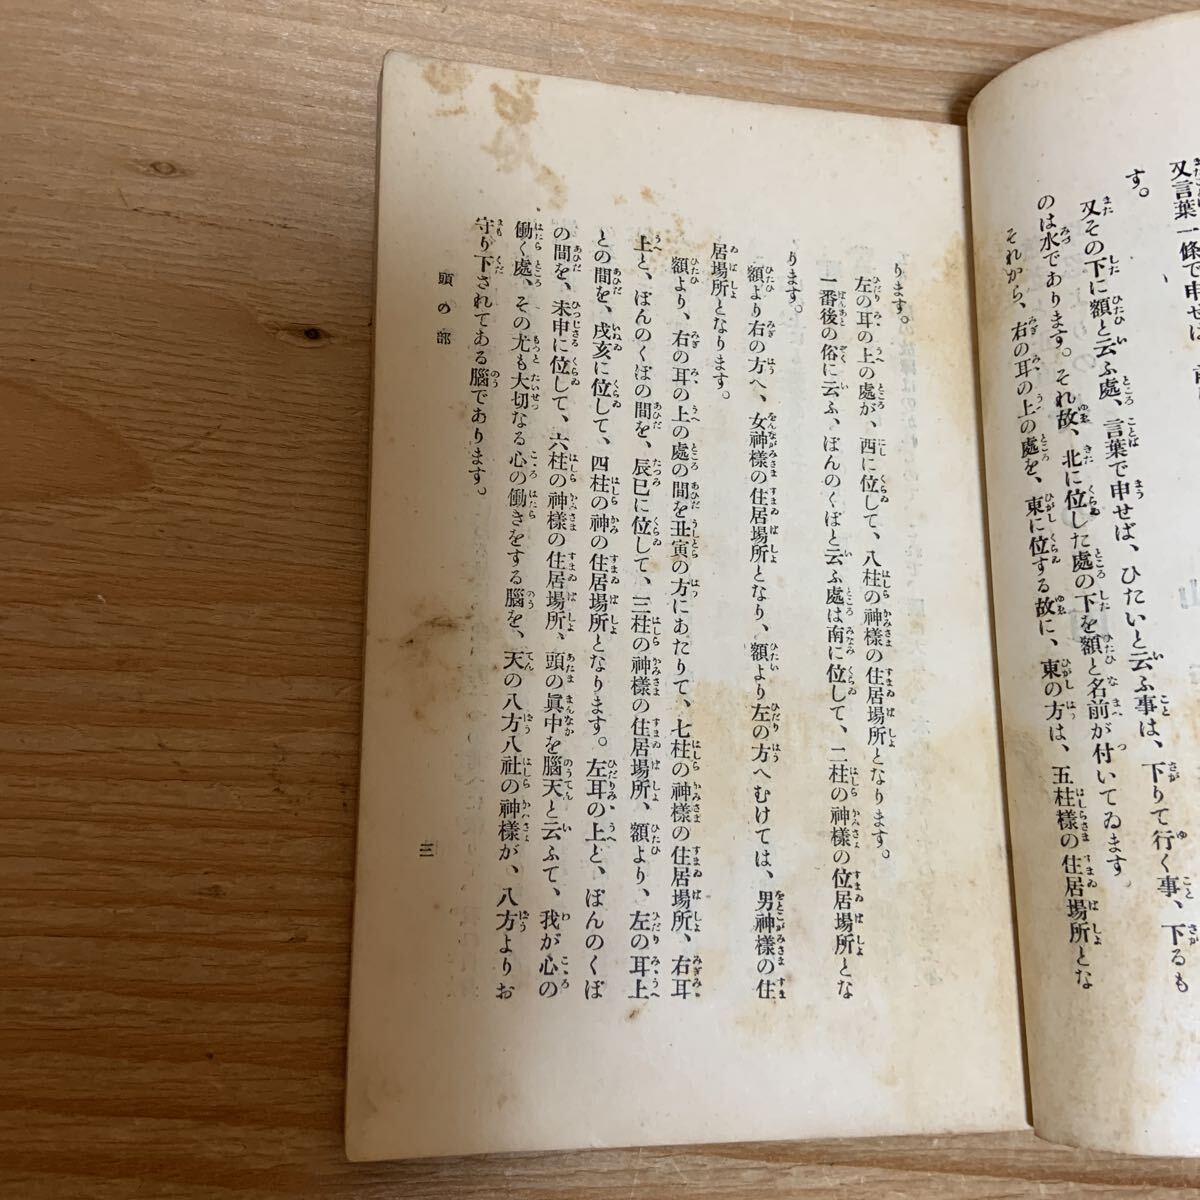 又言葉一條で申せば、
す。
又その下に額と云ふ處、言葉で申せば、ひたいと云ふ事は、下りて行く事、下るも
のは水であります。それ故、北に位した處の下を額と名前が付いてゐます。
それから、右の耳の上の處を、東に位する故に、東の方は、五柱樣の住居場所とな
ります。
左の耳の上の處が、西に位して、八柱の神樣の住居場所となります。
一番後の俗に云ふ、ぼんのくぼと云ふ處は南に位して、二柱の神樣の位居場所とな
ります。
額より右の方へ、女神樣の住居場所となり、額より左の方へむけては、男神樣の住
居場所となります。
額より、右の耳の上の處の間を丑寅の方にあたりて、七柱の神樣の住居場所、右耳
上と、ぼんのくぼの間を、辰巳に位して、三柱の神樣の住居場所、額より、左の耳上
との間を、戌亥に位して、四柱の神の住居場所となります。左耳の上と、ぼんのくぼ
の間を、未申に位して、六柱の神樣の住居場所、頭の眞中を腦天と云ふて、我が心の
働く處、その尤も大切なる心の働きをする腦を、天の八方八社の神樣が、八方よりお
守り下されてある腦であります。
頭の部
三